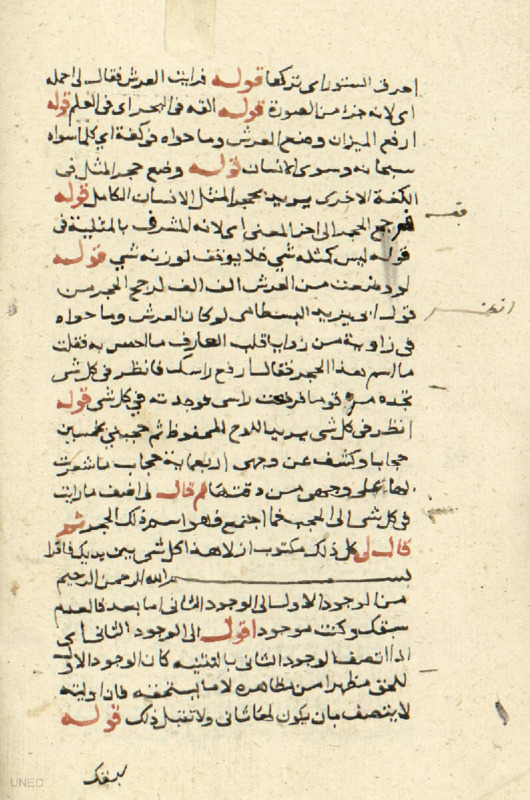 احرف الستور اى تركها قوله فرايت العرش فقال لى احمله
اى لانه جزء من الصورة قوله القه فى البحر اى فى العلم قوله
ارفع الميزان وضع العرش وما حواه فى كفة اى كلما سواه
سبحانه وسوى الانسان قوله وضع حجر المثل فى
الكفة الاخرى يريد بحجر المثل الانسان الكامل قوله
فرجع الحجر الى اخر المعنى اى لانه المشرف بالمثلية فى
قوله ليس كمثله شي فلا يوقف لوزنه شي قوله
لو وضعت من العرش الف الف لرجح الحجر من
قول ابى يزيد البسطامى لو كان العرش وما حواه
فى زاوية من زوايا قلب العارف ما احس به فقلت
ما اسم هذا الحجر فقال ارفع راسك فانظر فى كل شى
تجده مرقوما فرفعت راسى فوجدته فى كل شى قوله
انظر فى كل شى يريد اللوح المحفوظ ثم حجبنى بخمسين
حجابا وكشف عن وجهى اربعماية حجاب ما شعرت
بها على وجهى من دقتها ثم قال لى اضف ما رايت
فى كل شى الى الحجب فما اجتمع فهو اسم ذلك الحجر ثم
قال لى كل ذلك مكتوب ازلا هذا كل شى بين يديك فاقرا
بسم الله الرحمن الرحيم
من الوجود الاول الى الوجود الثانى اما بعد فالعدم
سبقك وكنت موجودا قوله الى الوجود الثانى اى
لما اتصف الوجود الثانى بالتثنيه كان الوجود الاول
للحق مظهرا من مظاهره لا ما يستحقه فان اوليته
لا يتصف بان يكون لها ثانى ولا تقبل ذلك قوله
سبقك
انظر
UNED